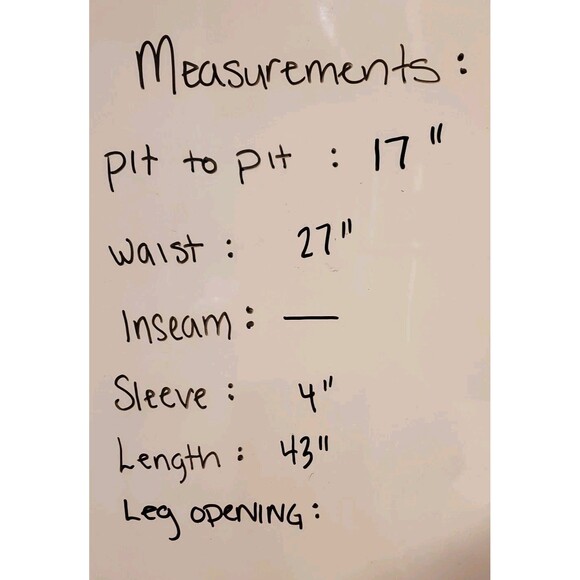 Measurements:
pit to pit : 17"
Waist : 27"
Inseam : —
Sleeve : 4"
Length : 43"
Leg OPENING :